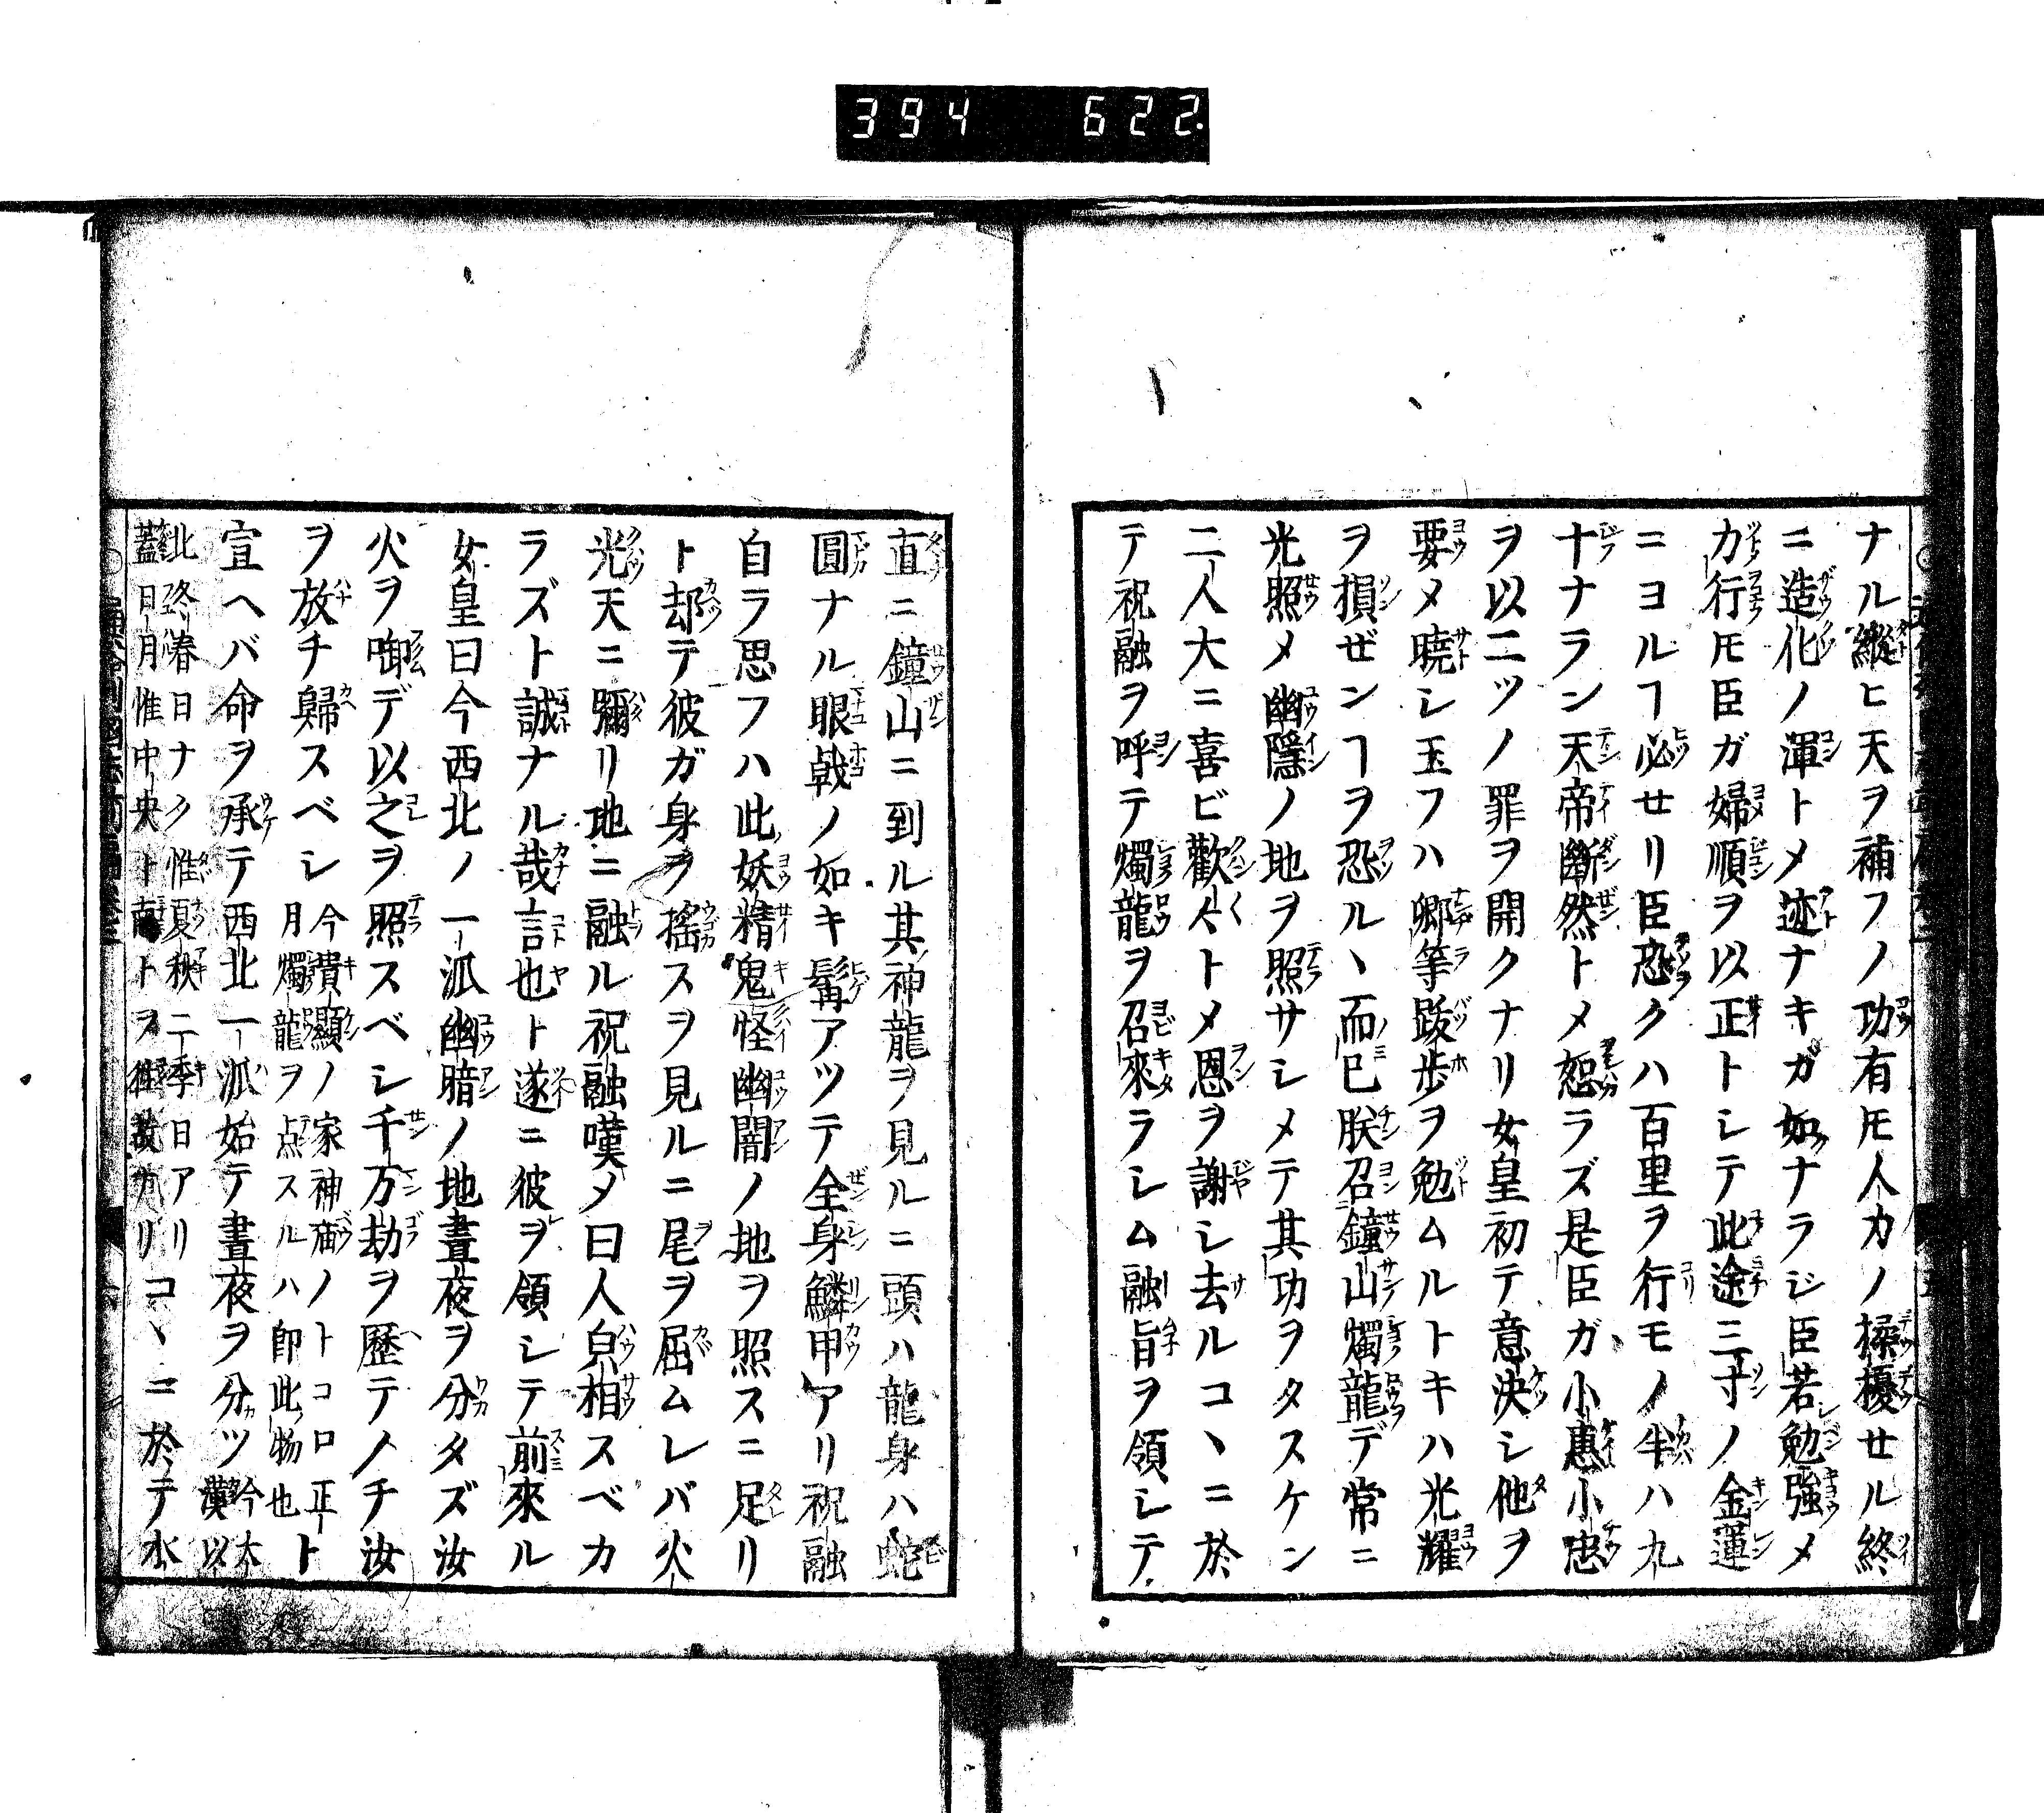 394 622
ナル縱ヒ天ヲ補フノ功有モ人力ノ操擾セル終
ニ造化ノ渾トメ迹ナキガ如ナラジ臣若勉強メ
力行モ臣ガ婦順ヲ以正トシテ此途三寸ノ金蓮
ニヨルヿ必セリ臣恐クハ百里ヲ行モノ半ハ九
十ナラン天帝斷然トメ恕ラズ是臣ガ小惠小忠
ヲ以二ツノ罪ヲ開クナリ女皇初テ意決シ他ヲ
要メ曉シ玉フハ卿等跋歩ヲ勉ムルトキハ光耀
ヲ損ゼンヿヲ恐ルヽ而已朕召鐘山燭龍デ常ニ
光照メ幽隱ノ地ヲ照サシメテ其功ヲタスケン
二人大ニ喜ビ歡々トメ恩ヲ謝シ去ルコヽニ於
テ祝融ヲ呼テ燭龍ヲ召來ラシム融旨ヲ領シテ
直ニ鐘山ニ到ル其神龍ヲ見ルニ頭ハ龍身ハ蛇
圓ナル眼戟ノ如キ髯アツテ全身鱗甲アリ祝融
自ラ思フハ此妖精鬼怪幽闇ノ地ヲ照スニ足リ
ト却テ彼ガ身ヲ搖スヲ見ルニ尾ヲ屈ムレバ火
光天ニ彌リ地ニ融ル祝融嘆メ曰人皃相スベカ
ラズト誠ナル哉言也ト遂ニ彼ヲ領シテ前來ル
女皇曰今西北ノ一派幽暗ノ地晝夜ヲ分タズ汝
火ヲ啣デ以之ヲ照スベシ千万劫ヲ歴テノチ汝
ヲ放チ歸スベシ今貴顯ノ家神廟ノトコロ正月燭龍ヲ点スルハ即此物也ト
宣ヘバ命ヲ承テ西北一派始テ晝夜ヲ分ツ今太漢以
北終春日ナク惟夏秋二季日アリ
蓋日月惟中央ト南トヲ往故ナリコヽニ於テ水